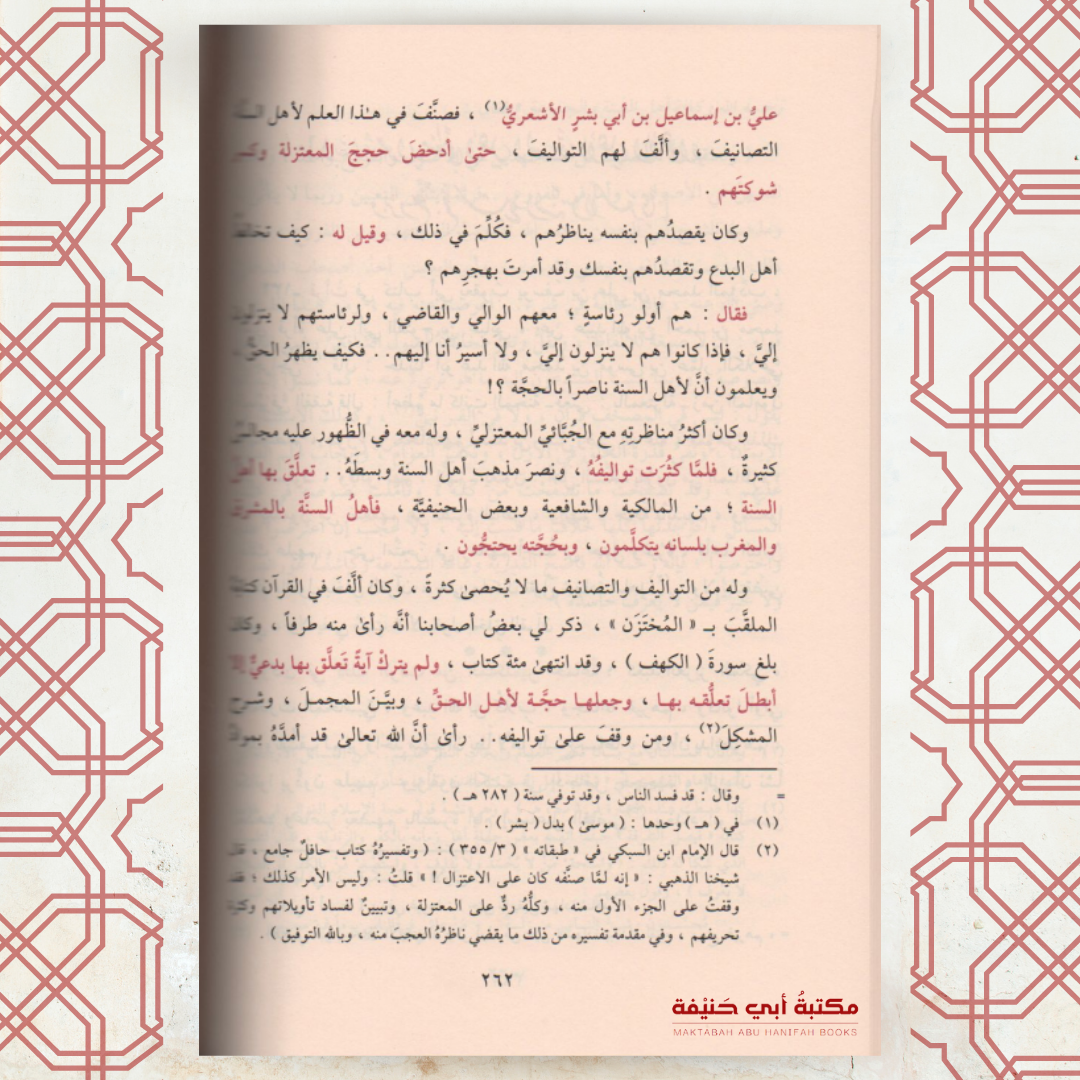 عليُّ بن إسماعيل بن أبي بشرٍ الأشعريُّ(١) ، فصنَّفَ في هـٰذا العلم لأهل
التصانيفَ ، وألَّفَ لهم التواليفَ ، حتىٰ أدحضَ حججَ المعتزلة وكسر
شوكتَهم .
وكان يقصدُهم بنفسه يناظرُهم ، فكُلِّمَ في ذلك ، وقيل له : كيف تخالط
أهل البدع وتقصدُهم بنفسك وقد أمرتَ بهجرِهم ؟
فقال : هم أولو رئاسةٍ ؛ معهم الوالي والقاضي ، ولرئاستهم لا ينزلون
إليَّ ، فإذا كانوا هم لا ينزلون إليَّ ، ولا أسيرُ أنا إليهم.. فكيف يظهرُ الحقُّ
ويعلمون أنَّ لأهل السنة ناصراً بالحجَّة ؟!
وكان أكثرُ مناظرتِهِ مع الجُبَّائيِّ المعتزليِّ ، وله معه في الظُّهور عليه مجالسُ
كثيرةٌ ، فلمَّا كثُرَت تواليفُهُ ، ونصرَ مذهبَ أهل السنة وبسطَهُ.. تعلَّقَ بها أهلُ
السنة ؛ من المالكية والشافعية وبعض الحنيفيَّة ، فأهلُ السنَّة بالمشرق
والمغرب بلسانه يتكلَّمون ، وبحُجَّته يحتجُّون .
وله من التواليف والتصانيف ما لا يُحصىٰ كثرةً ، وكان ألَّفَ في القرآن كتابَهُ
الملقَّبَ بـ « المُختَزَن » ، ذكر لي بعضُ أصحابنا أنَّه رأىٰ منه طرفاً ، وكان
بلغ سورةَ ( الكهف ) ، وقد انتهىٰ مئة كتاب ، ولم يتركْ آيةً تَعلَّق بها بدعيٌّ إلا
أبطلَ تعلُّقه بها ، وجعلها حجَّة لأهل الحقِّ ، وبيَّنَ المجملَ ، وشرح
المشكِلَ(٢) ، ومن وقفَ علىٰ تواليفه.. رأىٰ أنَّ الله تعالىٰ قد أمدَّهُ بموادِّ
= وقال : قد فسد الناس ، وقد توفي سنة ( ٢٨٢ هـ ) .
(١) في ( هـ ) وحدها : ( موسىٰ ) بدل ( بشر ) .
(٢) قال الإمام ابن السبكي في « طبقاته » ( ٣/ ٣٥٥ ) : ( وتفسيرُهُ كتاب حافلٌ جامع ، قال
شيخنا الذهبي : « إنه لمَّا صنَّفه كان على الاعتزال ! » قلتُ : وليس الأمر كذلك ؛ فقد
وقفتُ على الجزء الأول منه ، وكلُّهُ ردٌّ على المعتزلة ، وتبيينٌ لفساد تأويلاتهم وكثرة
تحريفهم ، وفي مقدمة تفسيره من ذلك ما يقضي ناظرُهُ العجبَ منه ، وبالله التوفيق ) .
٢٦٢
مكتبةُ أبي حَنيْفة
MAKTABAH ABU HANIFAH BOOKS